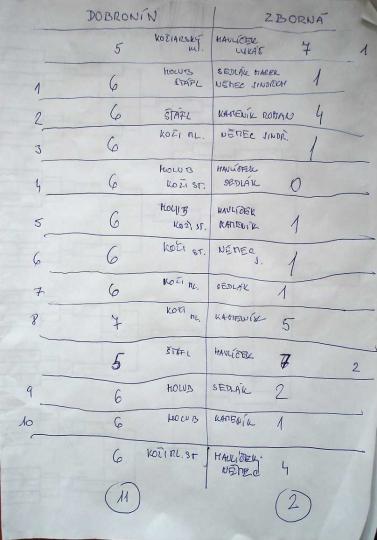 DOBRONÍN ZBORNÁ
5 KOŽIARSKÝ ML. HAVLÍČEK LUKÁŠ 7 1
1 6 HOLUB ŠTÁFL SEDLÁK MAREK NĚMEC JINDŘICH 1
2 6 ŠTÁFL KAMENÍK ROMAN 4
3 6 KOŽI ML. NĚMEC JINDŘ. 1
4 6 HOLUB KOŽI ST. HAVLÍČEK SEDLÁK 0
5 6 HOLUB KOŽI ST. HAVLÍČEK KAMENÍK 1
6 6 KOŽI ST. NĚMEC J. 1
7 6 KOŽI ML. SEDLÁK 1
8 7 KOŽI ML. KAMENÍK 5
5 ŠTÁFL HAVLÍČEK 7 2
9 6 HOLUB SEDLÁK 2
10 6 HOLUB KAMENÍK 1
6 KOŽI ML. ST HAVLÍČEK NĚMEC 4
11 2